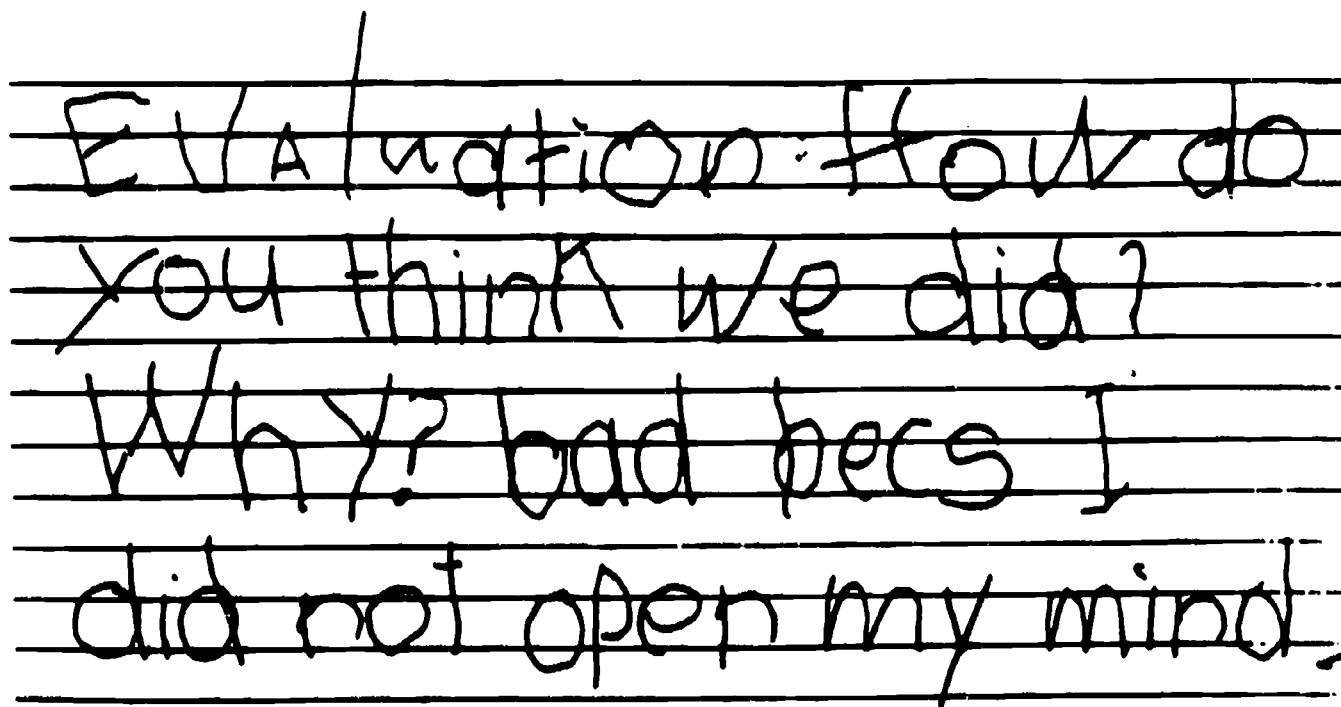 EVAluation: How do
you think we did?
Why? bad becs I
did not open my mind.